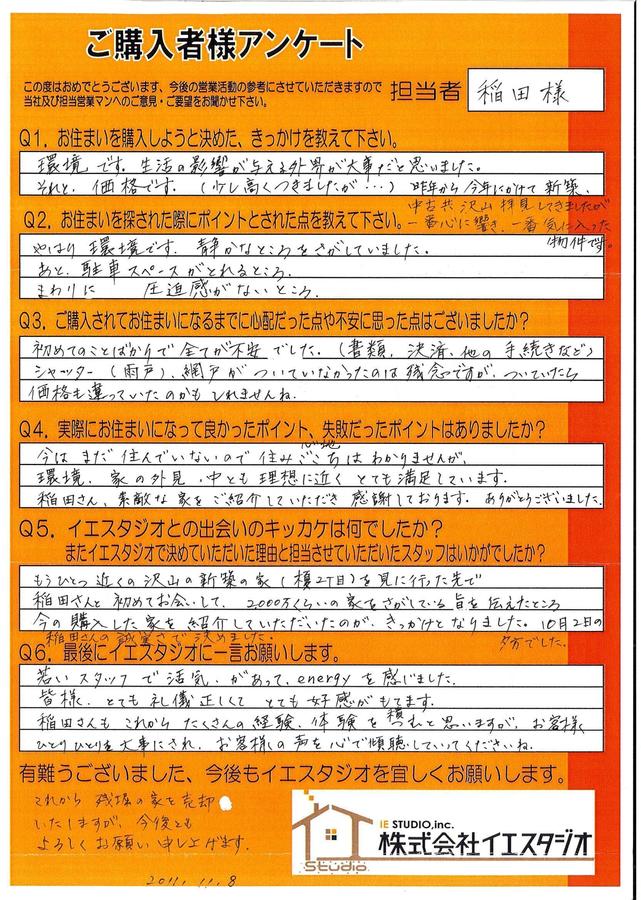 ご購入者様アンケート
この度はおめでとうございます、今後の営業活動の参考にさせていただきますので
当社及び担当営業マンへのご意見・ご要望をお聞かせ下さい。
担当者
稲田様
Q1. お住まいを購入しようと決めた、きっかけを教えて下さい。
環境です。生活の影響が与える外界が大事だと思いました。
それと、価格です。(少し高くつきましたが…) 昨年から今年にかけて新築、
中古共沢山拝見してきましたが
一番心に響き、一番気に入った
物件です。
Q2. お住まいを探された際にポイントとされた点を教えて下さい。
やはり環境です。静かなところをさがしていました。
あと、駐車スペースがとれるところ。
まわりに 圧迫感がないところ。
Q3. ご購入されてお住まいになるまでに心配だった点や不安に思った点はございましたか?
初めてのことばかりで全てが不安でした。(書類、決済、他の手続きなど)
シャッター(雨戸)、網戸がついていなかったのは残念ですが、ついていたら
価格も違っていたのかもしれませんね。
Q4. 実際にお住まいになって良かったポイント、失敗だったポイントはありましたか?
今はまだ住んでいないので住み心地はわかりませんが、
環境、家の外見、中とも理想に近くとても満足しています。
稲田さん、素敵な家をご紹介していただき感謝しております。ありがとうございました。
Q5. イエスタジオとの出会いのキッカケは何でしたか?
またイエスタジオで決めていただいた理由と担当させていただいたスタッフはいかがでしたか?
もうひとつ近くの沢山の新築の家(榎2丁目)を見に行った先で
稲田さんと初めてお会いして、2000万くらいの家をさがしている旨を伝えたところ
今の購入した家を紹介していただいたのが、きっかけとなりました。10月2日の
夕方でした。
稲田さんの誠実さで決めました。
Q6. 最後にイエスタジオに一言お願いします。
若いスタッフで活気があって、energyを感じました。
皆様、とても礼儀正しくてとても好感がもてます。
稲田さんもこれからたくさんの経験、体験を積つもと思いますが、お客様
ひとりひとりを大事にされ、お客様の声を心で傾聴していってくださいね。
有難うございました、今後もイエスタジオを宜しくお願いします。
これから 残堀の家を売却
いたしますが、今後とも
よろしくお願い申し上げます。
2011.11.8
IE STUDIO,inc.
株式会社イエスタジオ
Studio